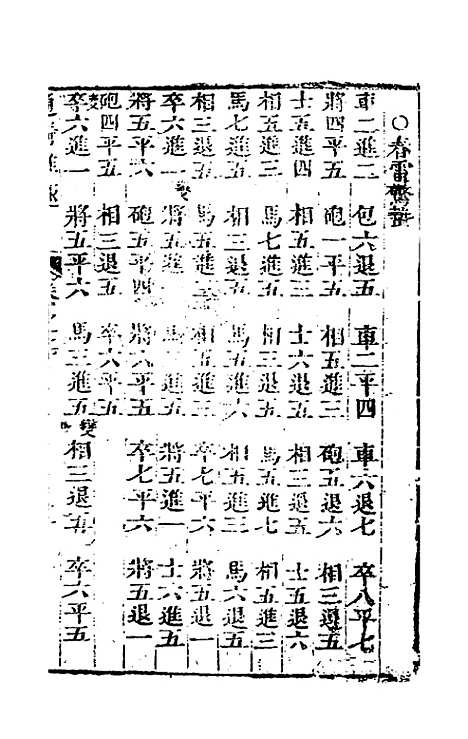 ○春雷驚蟄
車二進二 包六退五 車二平四 車六退七 卒八平七
將四平五 砲一平五 相五進三 砲五退六 相三退五
士五進四 相五進三 士六退五 相三退五 士五退六
相五進三 馬七進五 相三退五 馬五進七 相五進三
馬七進五 相三退五 馬五進六 相五進三 馬六退五
相三退五 馬五進三 相五進三 卒七平六 將五平四
卒六進一變 將五進一 馬三進五 將五進一 士六進五
將五平六 砲五平四 將六平五 卒七平六 將五退一
砲四平五 相三退五 卒六平五
變卒六進一 將五平六 馬三進五變 相三退五 卒六平五